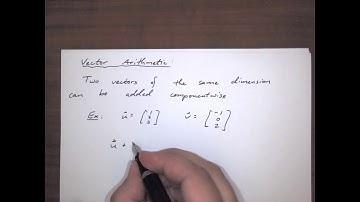 Vector Arithmetic:
Two vectors of the same dimension
can be added componentwise
Ex: ū = [ 1 ] v̄ = [ -1 0 2 ]
ū +